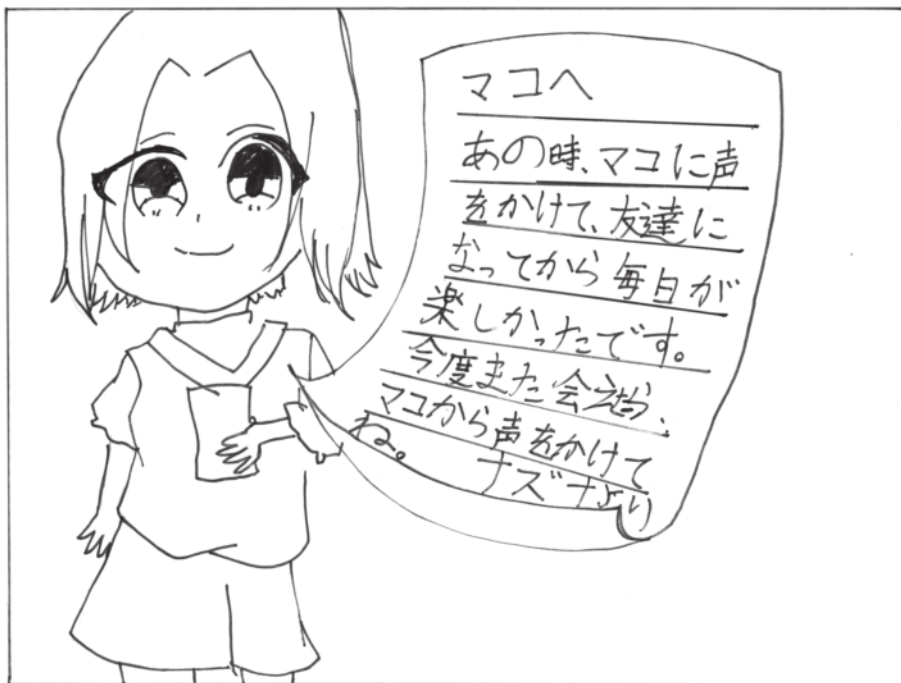 マコへ
あの時、マコに声
をかけて、友達に
なってから毎日が
楽しかったです。
今度また会えたら、
マコから声をかけて
ね。
ナズナより